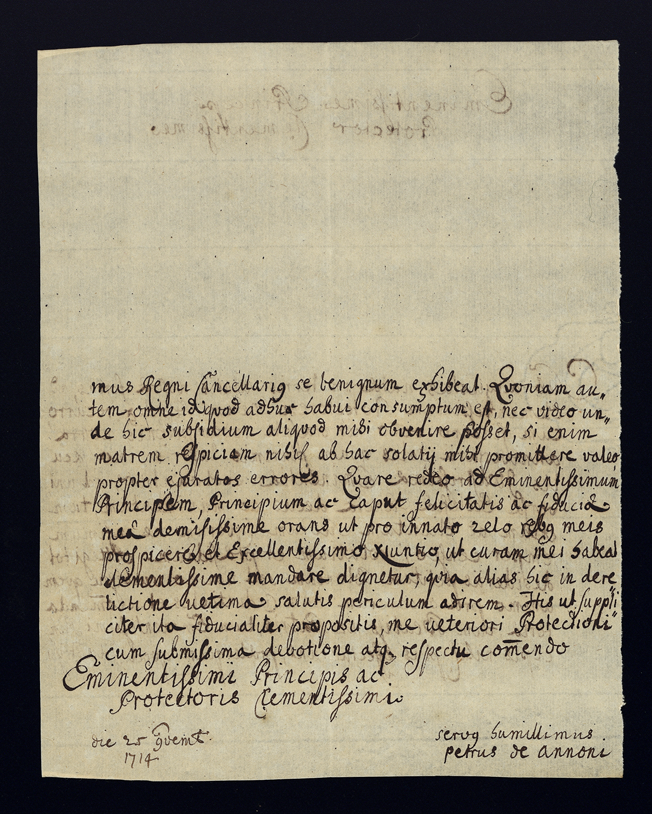 Eminentissime Princeps
Protector Clementissime
mus Regni Cancellariq se benignum exhibeat. Quoniam au„
tem omne id quod adhuc habui consumptum est, nec video un„
de hic subsidium aliquod mihi obvenire posset, si enim
matrem respiciam nihil ab hac solatij mihi promittere valeo
propter ejuratos errores. Quare redeo ad Eminentissimum
Principem, Principium ac Caput felicitatis ac fiducia
mea demisissime orans ut pro innato zelo rebq meis
prospiceret et Excellentissimo Nuntio, ut curam mei habeat
clementissime mandare dignetur, quia alias hic in dere
lictione ultima salutis periculum adirem. His ut suppli
citer ita fiducialiter propositis, me ulteriori Protectioni
cum submissima devotione atq respectu comendo
Eminentissimi Principis ac
Protectoris Clementissimi
die 25
1714
servq humillimus
Petrus de Annoni